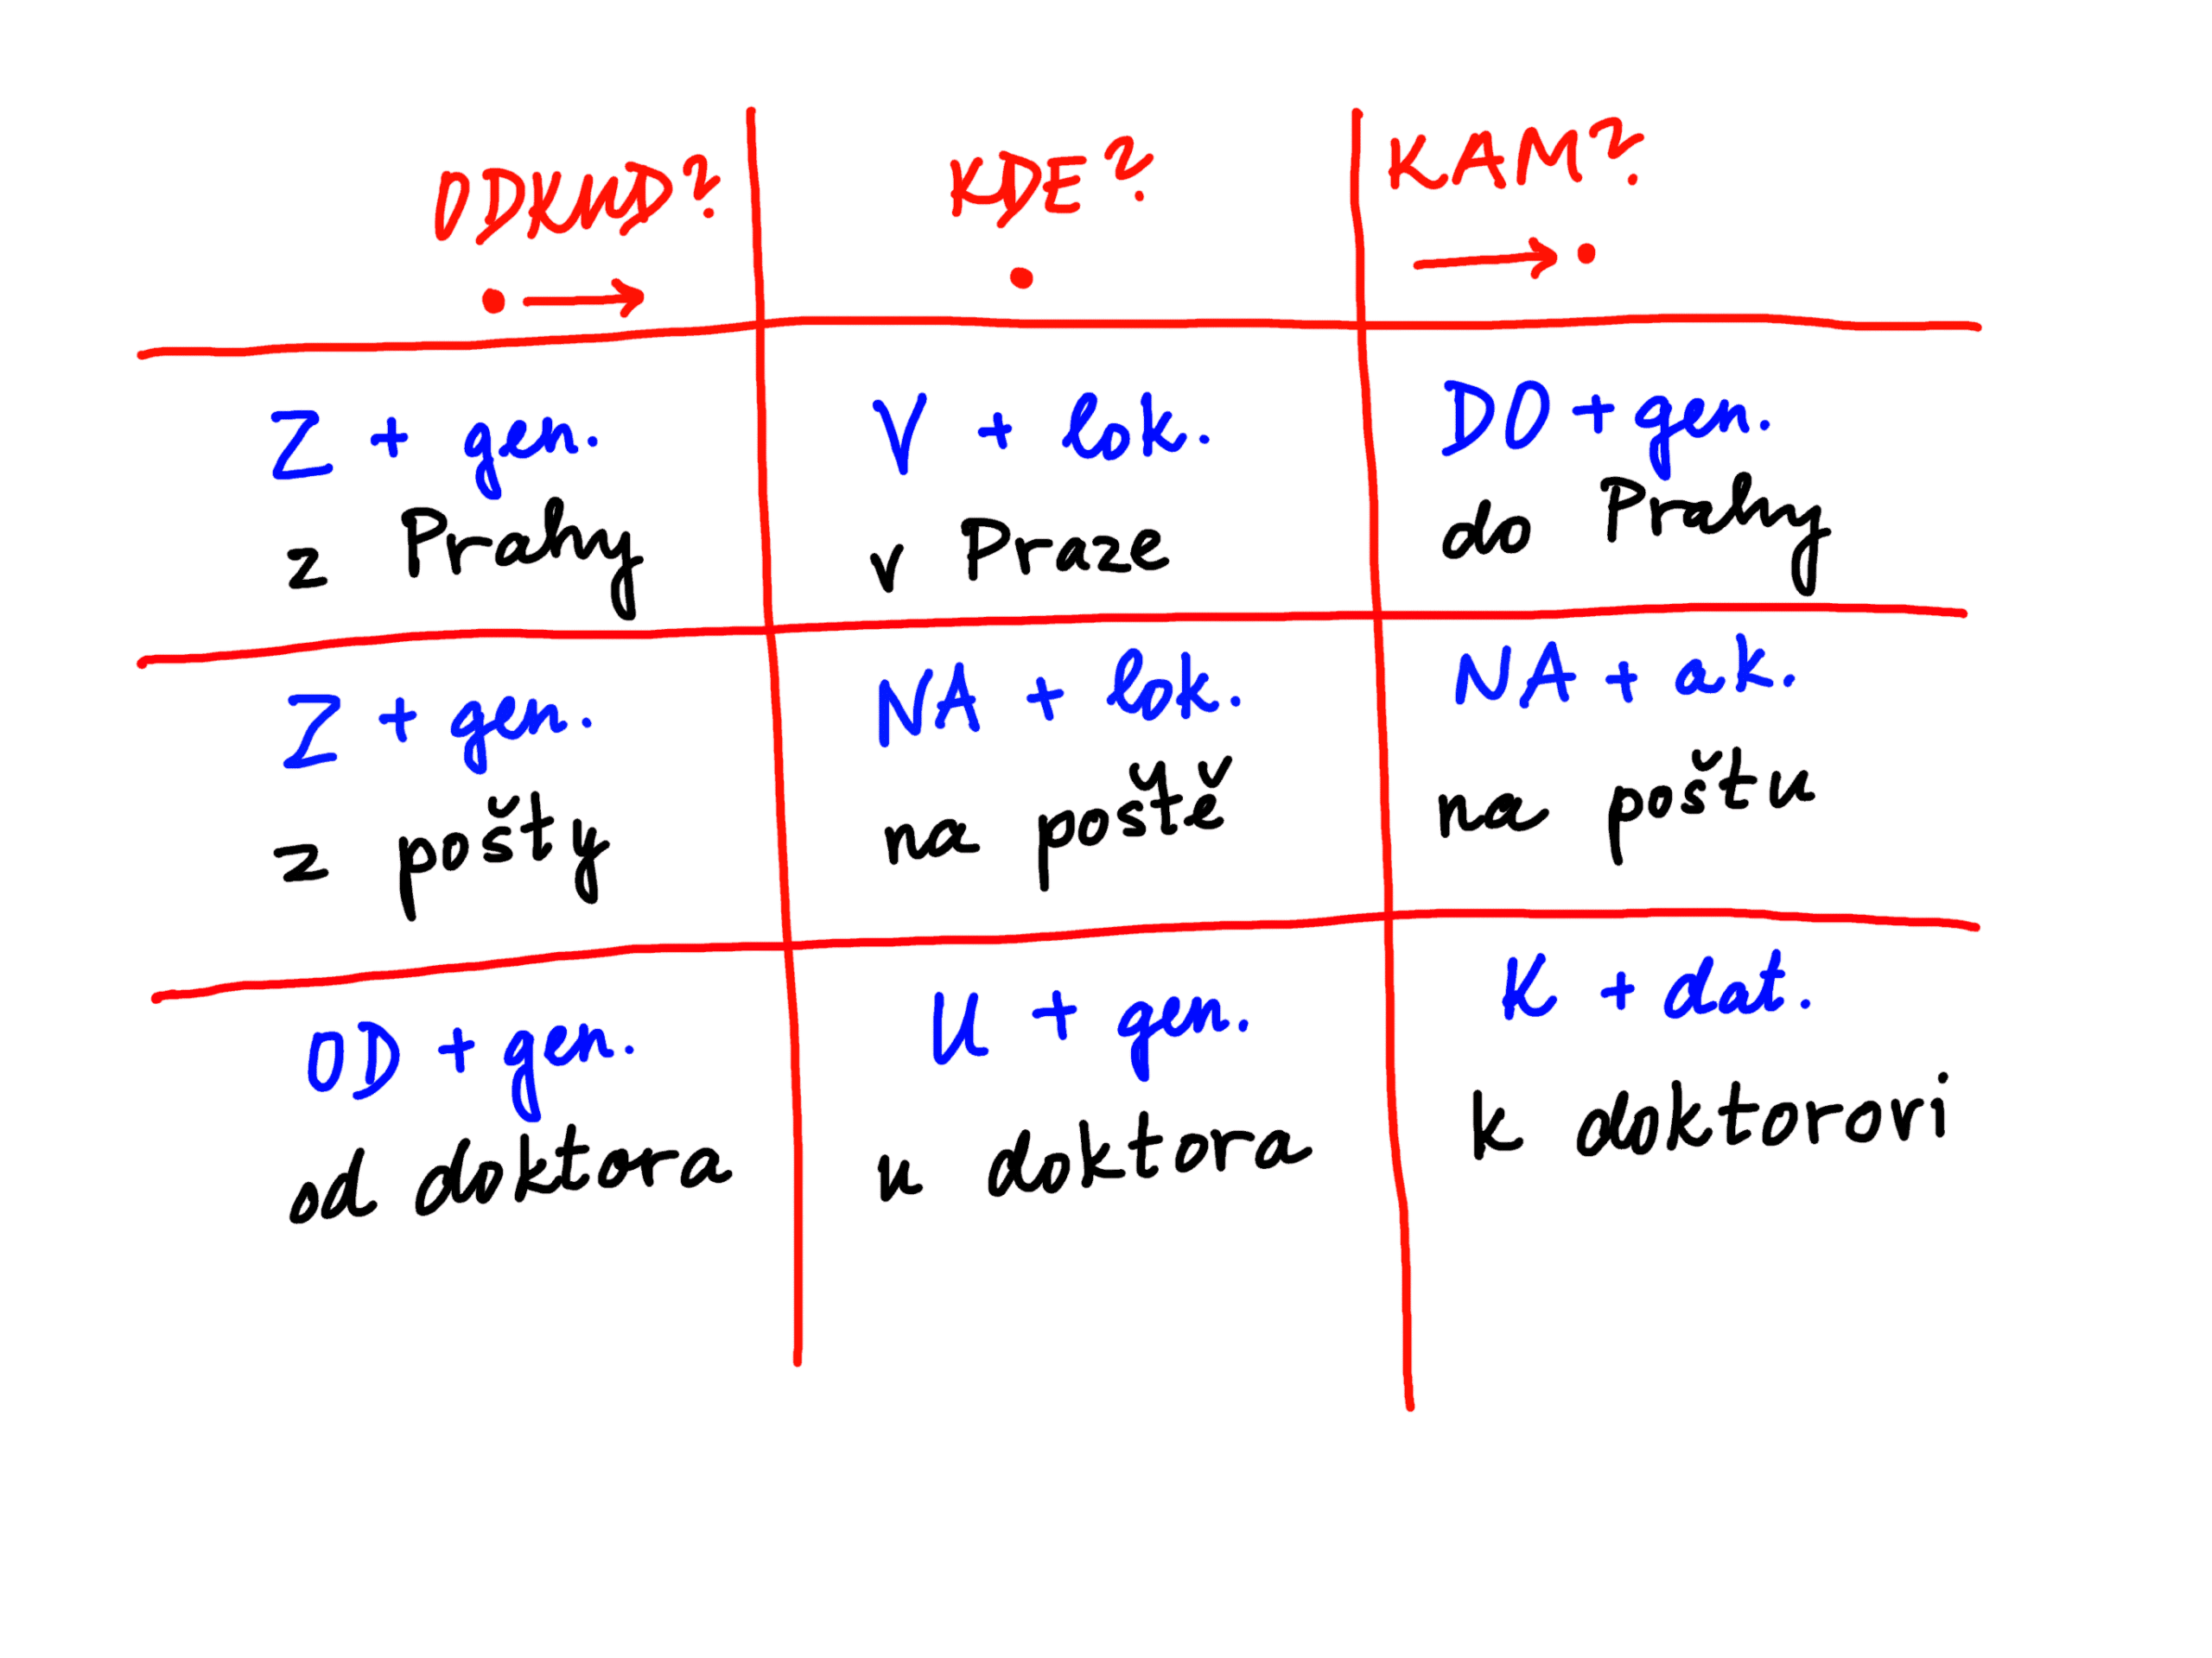 ODKUD?
KDE?
KAM?
Z + gen.
z Prahy
V + lok.
v Praze
DO + gen.
do Prahy
Z + gen.
z pošty
NA + lok.
na poště
NA + ak.
na poštu
OD + gen.
od doktora
U + gen.
u doktora
K + dat.
k doktorovi